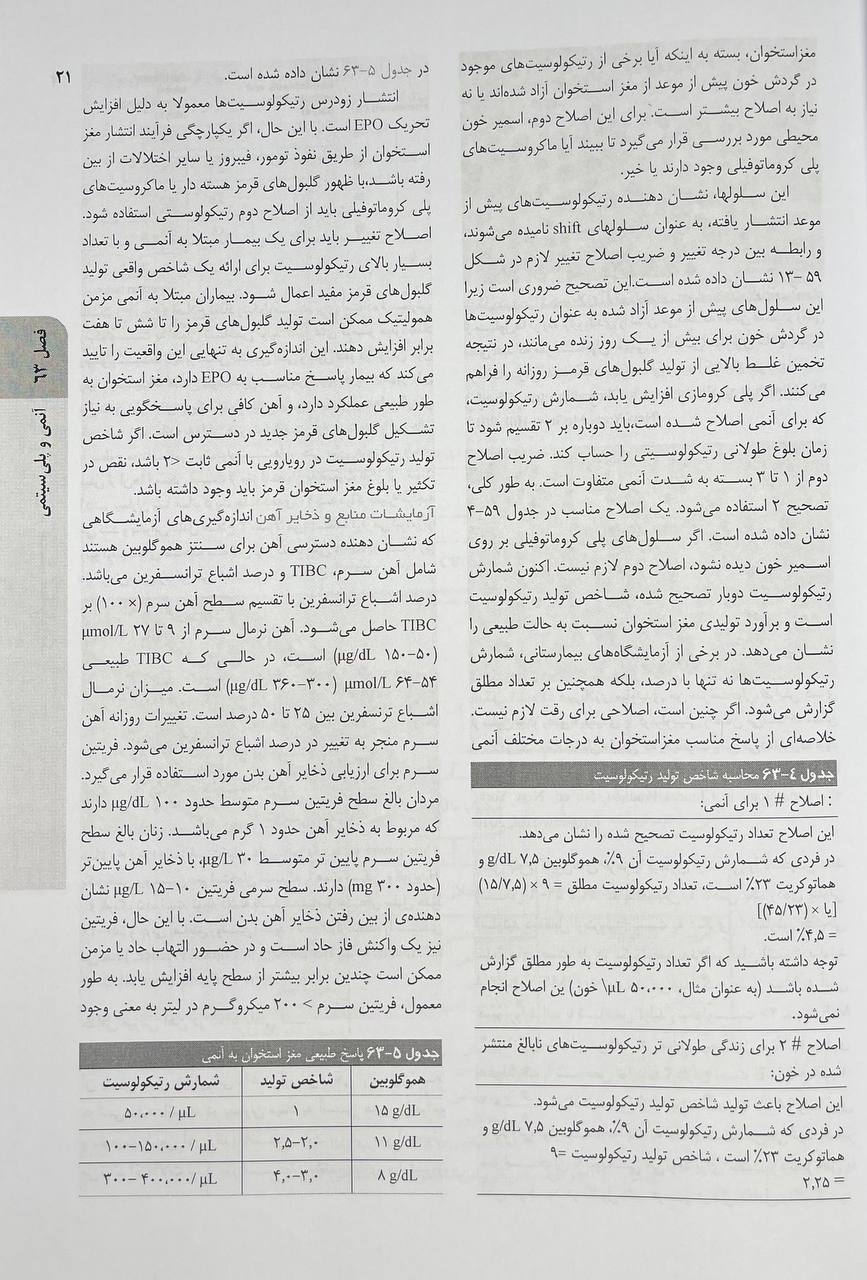 مغزاستخوان، بسته به اینکه آیا برخی از رتیکولوسیت‌های موجود
در گردش خون پیش از موعد از مغز استخوان آزاد شده‌اند یا نه
نیاز به اصلاح بیشتر است. برای این اصلاح دوم، اسمیر خون
محیطی مورد بررسی قرار می‌گیرد تا ببیند آیا ماکروسیت‌های
پلی کروماتوفیلی وجود دارند یا خیر.
این سلولها، نشان دهنده رتیکولوسیت‌های پیش از
موعد انتشار یافته، به عنوان سلولهای shift نامیده می‌شوند،
و رابطه بین درجه تغییر و ضریب اصلاح تغییر لازم در شکل
۵۹ –۱۳ نشان داده شده است.این تصحیح ضروری است زیرا
این سلول‌های پیش از موعد آزاد شده به عنوان رتیکولوسیت‌ها
در گردش خون برای بیش از یک روز زنده می‌مانند، در نتیجه
تخمین غلط بالایی از تولید گلبول‌های قرمز روزانه را فراهم
می‌کنند. اگر پلی کرومازی افزایش یابد، شمارش رتیکولوسیت،
که برای آنمی اصلاح شده است،باید دوباره بر ۲ تقسیم شود تا
زمان بلوغ طولانی رتیکولوسیتی را حساب کند. ضریب اصلاح
دوم از ۱ تا ۳ بسته به شدت آنمی متفاوت است. به طور کلی،
تصحیح ۲ استفاده می‌شود. یک اصلاح مناسب در جدول ۵۹–۴
نشان داده شده است. اگر سلول‌های پلی کروماتوفیلی بر روی
اسمیر خون دیده نشود، اصلاح دوم لازم نیست. اکنون شمارش
رتیکولوسیت دوبار تصحیح شده، شاخص تولید رتیکولوسیت
است و برآورد تولیدی مغز استخوان نسبت به حالت طبیعی را
نشان می‌دهد. در برخی از آزمایشگاه‌های بیمارستانی، شمارش
رتیکولوسیت‌ها نه تنها با درصد، بلکه همچنین بر تعداد مطلق
گزارش می‌شود. اگر چنین است، اصلاحی برای رقت لازم نیست.
خلاصه‌ای از پاسخ مناسب مغزاستخوان به درجات مختلف آنمی
جدول ۴-۶۳ محاسبه شاخص تولید رتیکولوسیت
: اصلاح # ۱ برای آنمی:
این اصلاح تعداد رتیکولوسیت تصحیح شده را نشان می‌دهد.
در فردی که شمارش رتیکولوسیت آن ۹٪، هموگلوبین ۷,۵ g/dL و
هماتوکریت ۲۳٪ است، تعداد رتیکولوسیت مطلق = ۹ × (۱۵/۷,۵)
[یا × (۴۵/۲۳)]
= ۴,۵٪ است.
توجه داشته باشید که اگر تعداد رتیکولوسیت به طور مطلق گزارش
شده باشد (به عنوان مثال، ۵۰,۰۰۰ μL\ خون) این اصلاح انجام
نمی‌شود.
اصلاح # ۲ برای زندگی طولانی تر رتیکولوسیت‌های نابالغ منتشر
شده در خون:
این اصلاح باعث تولید شاخص تولید رتیکولوسیت می‌شود.
در فردی که شمارش رتیکولوسیت آن ۹٪، هموگلوبین ۷,۵ g/dL و
هماتوکریت ۲۳٪ است ، شاخص تولید رتیکولوسیت =۹
= ۲,۲۵
۲۱
در جدول ۵–۶۳ نشان داده شده است.
انتشار زودرس رتیکولوسیت‌ها معمولا به دلیل افزایش
تحریک EPO است. با این حال، اگر یکپارچگی فرآیند انتشار مغز
استخوان از طریق نفوذ تومور، فیبروز یا سایر اختلالات از بین
رفته باشد،با ظهور گلبول‌های قرمز هسته دار یا ماکروسیت‌های
پلی کروماتوفیلی باید از اصلاح دوم رتیکولوستی استفاده شود.
اصلاح تغییر باید برای یک بیمار مبتلا به آنمی و با تعداد
بسیار بالای رتیکولوسیت برای ارائه یک شاخص واقعی تولید
گلبول‌های قرمز مفید اعمال شود. بیماران مبتلا به آنمی مزمن
همولیتیک ممکن است تولید گلبول‌های قرمز را تا شش تا هفت
برابر افزایش دهند. این اندازه‌گیری به تنهایی این واقعیت را تایید
می‌کند که بیمار پاسخ مناسب به EPO دارد، مغز استخوان به
طور طبیعی عملکرد دارد، و آهن کافی برای پاسخگویی به نیاز
تشکیل گلبول‌های قرمز جدید در دسترس است. اگر شاخص
تولید رتیکولوسیت در رویارویی با آنمی ثابت <۲ باشد، نقص در
تکثیر یا بلوغ مغز استخوان قرمز باید وجود داشته باشد.
آزمایشات منابع و ذخایر آهن اندازه‌گیری‌های آزمایشگاهی
که نشان دهنده دسترسی آهن برای سنتز هموگلوبین هستند
شامل آهن سرم، TIBC و درصد اشباع ترانسفرین می‌باشد.
درصد اشباع ترانسفرین با تقسیم سطح آهن سرم (× ۱۰۰) بر
TIBC حاصل می‌شود. آهن نرمال سرم از ۹ تا ۲۷ μmol/L
(۵۰–۱۵۰ μg/dL) است، در حالی که TIBC طبیعی
۵۴–۶۴ μmol/L (۳۰۰–۳۶۰ μg/dL) است. میزان نرمال
اشباع ترنسفرین بین ۲۵ تا ۵۰ درصد است. تغییرات روزانه آهن
سرم منجر به تغییر در درصد اشباع ترانسفرین می‌شود. فریتین
سرم برای ارزیابی ذخایر آهن بدن مورد استفاده قرار می‌گیرد.
مردان بالغ سطح فریتین سرم متوسط حدود ۱۰۰ μg/dL دارند
که مربوط به ذخایر آهن حدود ۱ گرم می‌باشد. زنان بالغ سطح
فریتین سرم پایین تر متوسط ۳۰ μg/L، با ذخایر آهن پایین‌تر
(حدود ۳۰۰ mg) دارند. سطح سرمی فریتین ۱۰–۱۵ μg/L نشان
دهنده‌ی از بین رفتن ذخایر آهن بدن است. با این حال، فریتین
نیز یک واکنش فاز حاد است و در حضور التهاب حاد یا مزمن
ممکن است چندین برابر بیشتر از سطح پایه افزایش یابد. به طور
معمول، فریتین سرم > ۲۰۰ میکروگرم در لیتر به معنی وجود
جدول ۵-۶۳ پاسخ طبیعی مغز استخوان به آنمی
هموگلوبین شاخص تولید شمارش رتیکولوسیت
۱۵ g/dL ۱ ۵۰,۰۰۰ / μL
۱۱ g/dL ۲,۰–۲,۵ ۱۰۰–۱۵۰,۰۰۰ / μL
۸ g/dL ۳,۰–۴,۰ ۳۰۰– ۴۰۰,۰۰۰/ μL
فصل ۶۳ آنمی و پلی‌سیتمی